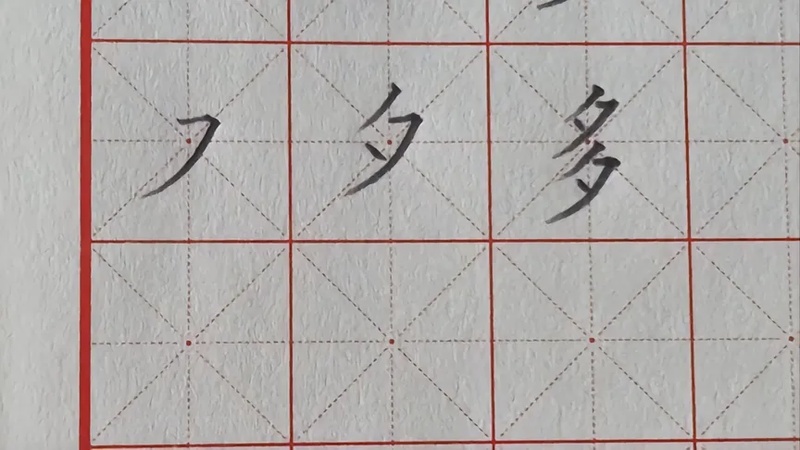 ㇇ 夕 多